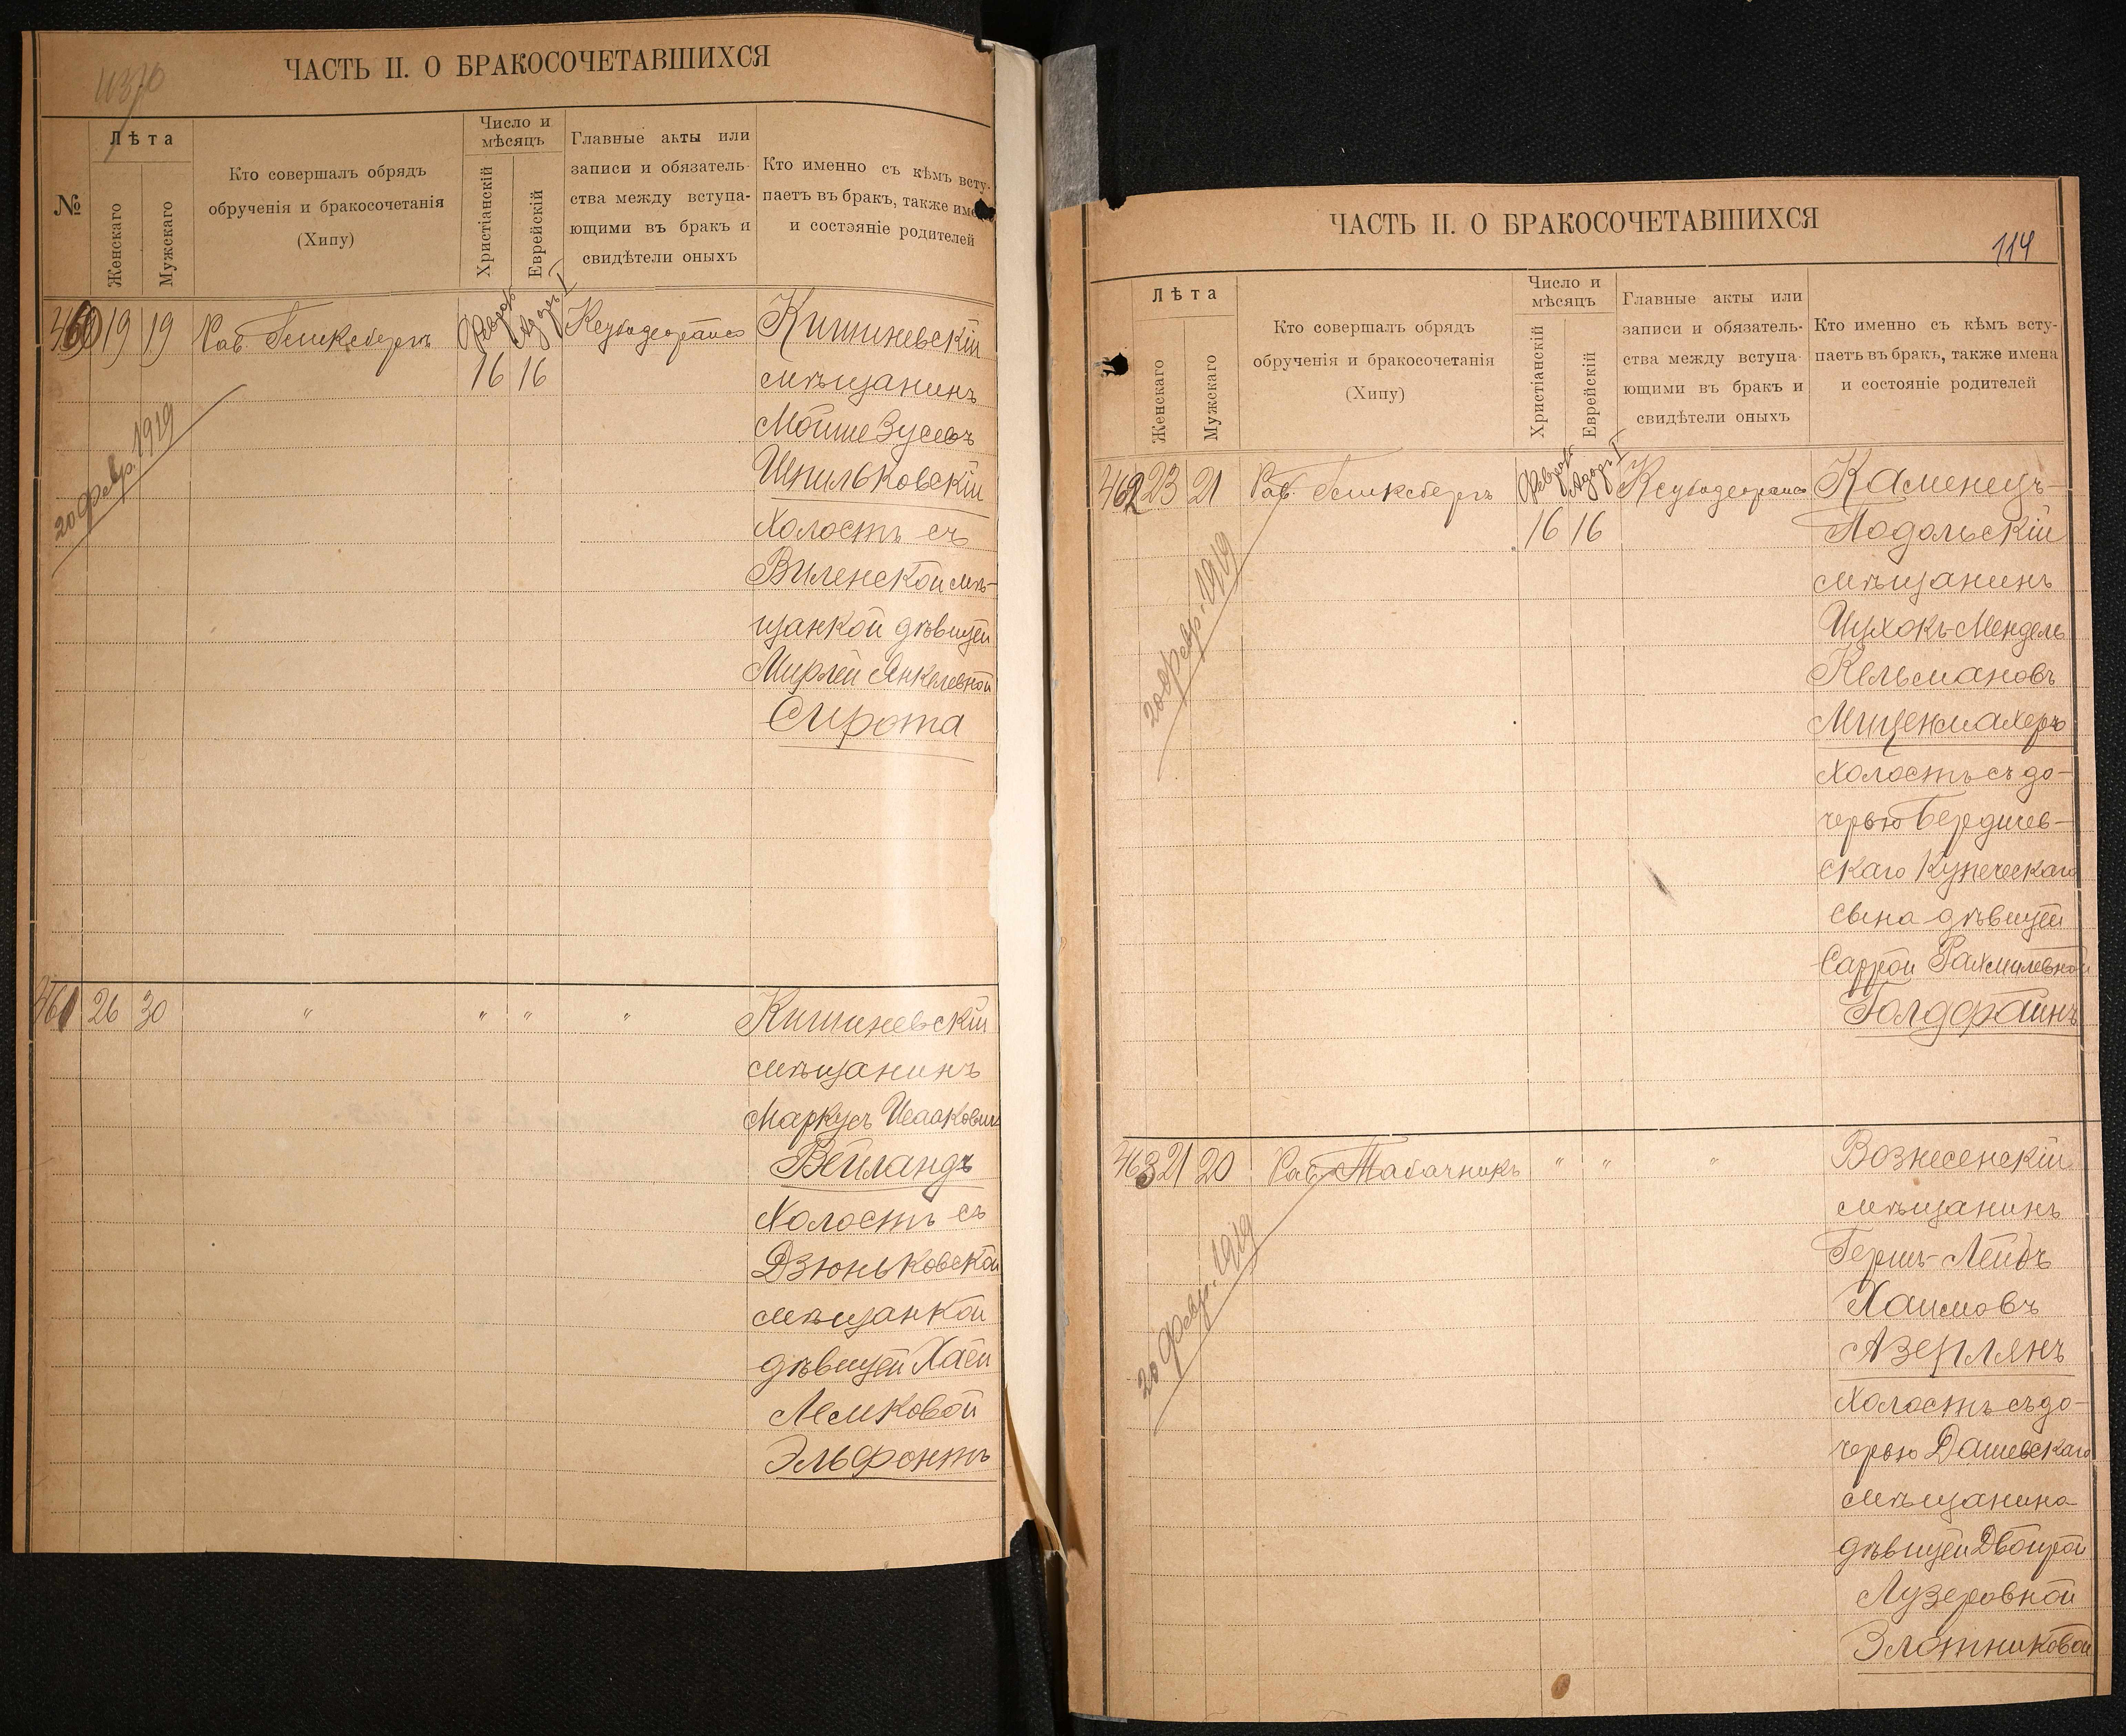 ЧАСТЬ II. О БРАКОСОЧЕТАВШИХСЯ
№
Лѣта
Женскаго
Мужскаго
Кто совершалъ обрядъ
обрученія и бракосочетанія
(Хипу)
Число и
мѣсяцъ
Христіанскій
Еврейскій
Главные акты или
записи и обязатель-
ства между вступа-
ющими въ бракъ и
свидѣтели оныхъ
Кто именно съ кѣмъ всту-
паетъ въ бракъ, также имена
и состояніе родителей
460 19 19 Раб. Февр. Адаръ I
16 16
Кишиневскій
мѣщанинъ
Мойше Зусевъ
Шпильковскій
холостъ съ
Виленской мѣ-
щанкой дѣвицей
Мирлей Янкелевной
Сирота
20 февр. 1919
461 26 30 " " " "
Кишиневскій
мѣщанинъ
Маркусъ Исааковичъ
Вейландъ
холостъ съ
Дзюньковской
мѣщанкой
дѣвицей Хаей
Лемковой
Эльфонтъ
ЧАСТЬ II. О БРАКОСОЧЕТАВШИХСЯ
114
Лѣта
Женскаго
Мужскаго
Кто совершалъ обрядъ
обрученія и бракосочетанія
(Хипу)
Число и
мѣсяцъ
Христіанскій
Еврейскій
Главные акты или
записи и обязатель-
ства между вступа-
ющими въ бракъ и
свидѣтели оныхъ
Кто именно съ кѣмъ всту-
паетъ въ бракъ, также имена
и состояніе родителей
462 23 21 Раб. Февр. Адаръ I
16 16
Каменецъ-
Подольскій
мѣщанинъ
Ицхокъ-Мендель
Кельмановъ
Миценмахеръ
холостъ съ до-
черью Бердичев-
скаго купеческаго
сына дѣвицей
Саррой Рахмилевной
Голдфайнъ
20 февр. 1919
463 21 20 Раб. Табачникъ " " "
Вознесенскій
мѣщанинъ
Гершъ-Лейбъ
Хаимовъ
Азерлянъ
холостъ съ до-
черью Дашевскаго
мѣщанина
дѣвицей Двойрой
Лузеровной
Злотниковой
20 февр. 1919